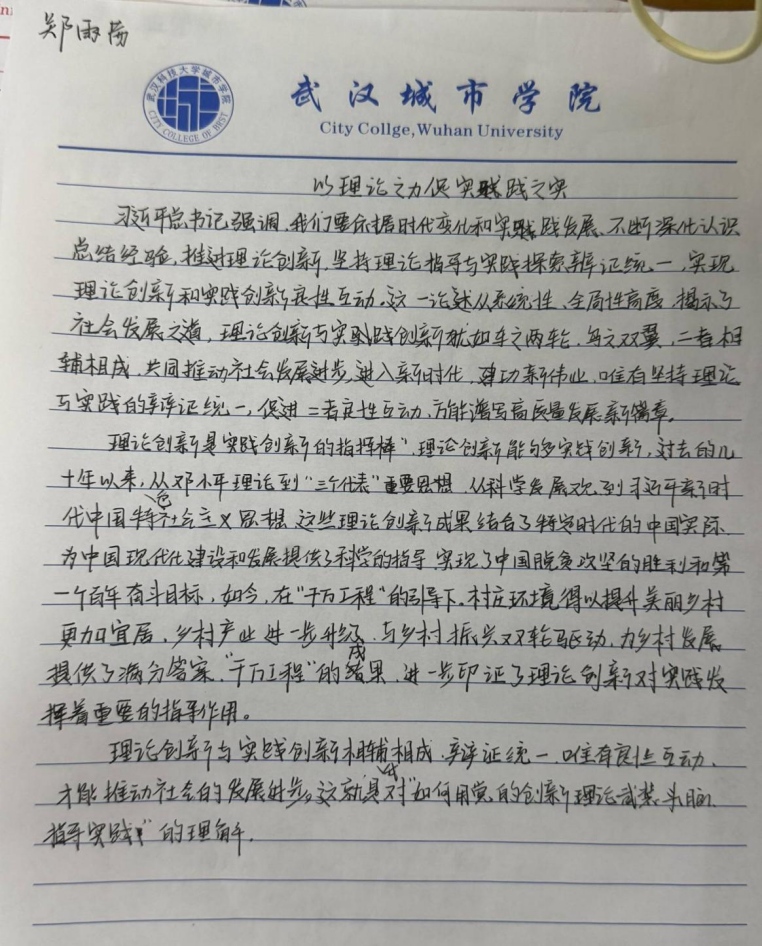 郑雨
武汉城市学院
City Collge,Wuhan University
武汉科技大学城市学院
CITY COLLEGE OF WUST
以理论之力促实践之实
习近平总书记强调,我们要依据时代变化和实践发展、不断深化认识
总结经验,推进理论创新,坚持理论指导与实践探索辩证统一,实现
理论创新和实践创新良性互动。这一论述从系统性、全局性高度揭示了
社会发展之道,理论创新与实践创新犹如车之两轮,鸟之双翼,二者相
辅相成,共同推动社会发展进步,进入新时代,建功新伟业,唯有坚持理论
与实践的辩证统一,促进二者良性互动,方能谱写高质量发展新篇章。
理论创新是实践创新的指挥棒",理论创新能够实践创新,过去的几
十年以来,从邓小平理论到"三个代表"重要思想,从科学发展观到习近平新时
代中国特色社会主义思想,这些理论创新成果结合了特定时代的中国实际,
为中国现代化建设和发展提供了科学的指导,实现了中国脱贫攻坚的胜利和第
一个百年奋斗目标,如今,在"千万工程"的引导下,村庄环境得以提升美丽乡村
更加宜居,乡村产业进一步升级,与乡村振兴双轮驱动,为乡村发展
提供了满分答案,"千万工程"的成果,进一步印证了理论创新对实践发
挥着重要的指导作用。
理论创新与实践创新相辅相成,辩证统一,唯有良性互动,
才能推动社会的发展进步。这就是对"如何用党的创新理论武装头脑、
指导实践"的理解。